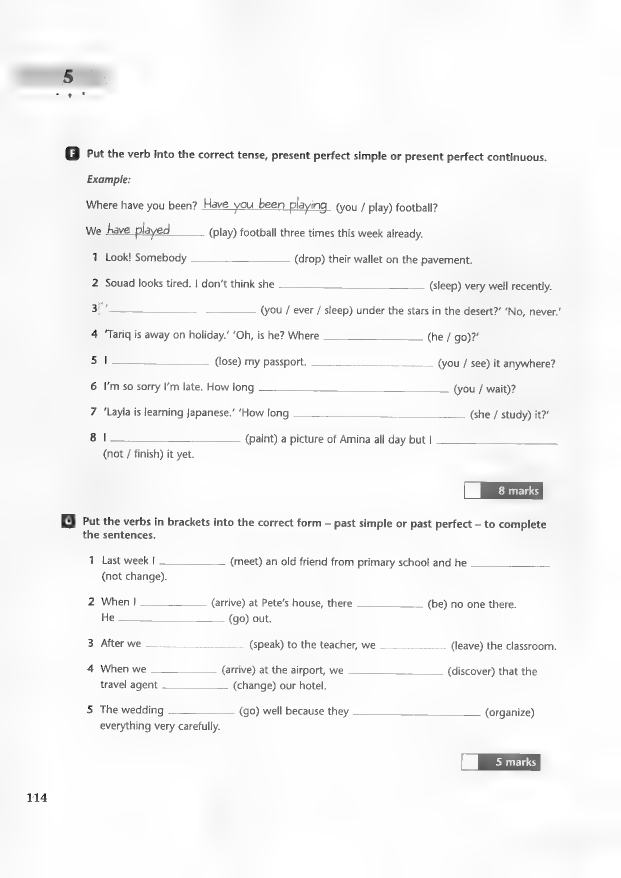 5
F Put the verb into the correct tense, present perfect simple or present perfect continuous.
Example:
Where have you been? Have you been playing (you / play) football?
We have played (play) football three times this week already.
1 Look! Somebody ____________ (drop) their wallet on the pavement.
2 Souad looks tired. I don't think she ____________ (sleep) very well recently.
3 '____________ ______ (you / ever / sleep) under the stars in the desert?' 'No, never.'
4 'Tariq is away on holiday.' 'Oh, is he? Where ____________ (he / go)?'
5 I ____________ (lose) my passport. ____________ (you / see) it anywhere?
6 I'm so sorry I'm late. How long ____________ (you / wait)?
7 'Layla is learning Japanese.' 'How long ____________ (she / study) it?'
8 I ____________ (paint) a picture of Amina all day but I ____________
(not / finish) it yet.
8 marks
G Put the verbs in brackets into the correct form – past simple or past perfect – to complete
the sentences.
1 Last week I ________ (meet) an old friend from primary school and he ________
(not change).
2 When I ________ (arrive) at Pete's house, there ________ (be) no one there.
He ____________ (go) out.
3 After we ____________ (speak) to the teacher, we ________ (leave) the classroom.
4 When we ________ (arrive) at the airport, we ____________ (discover) that the
travel agent ________ (change) our hotel.
5 The wedding ________ (go) well because they ____________ (organize)
everything very carefully.
5 marks
114